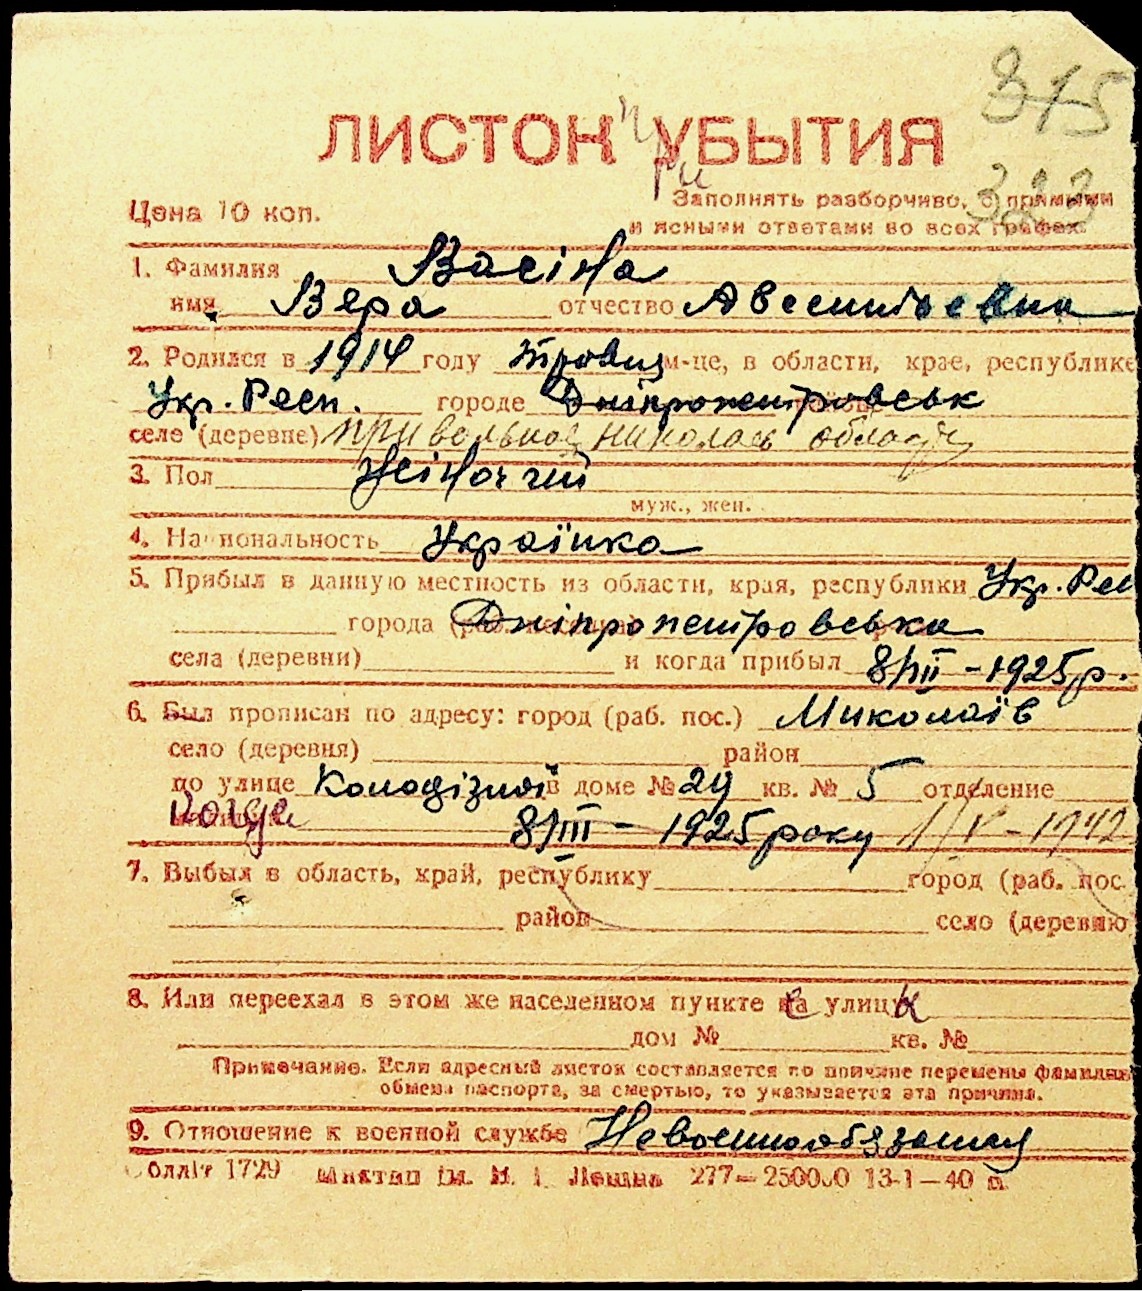 315
при
ЛИСТОК УБЫТИЯ
323
Цена 10 коп.
Заполнять разборчиво, с прямыми
и ясными ответами во всех графах.
1. Фамилия Васіна
имя Вера отчество
2. Родился в 1914 году м-це, в области, крае, республике
Укр. Респ. городе Дніпропетровськ
селе (деревне) привольное николаев области
3. Пол Жіночий
муж., жен.
4. Национальность Українка
5. Прибыл в данную местность из области, края, республики Укр. Рес
города Дніпропетровська
села (деревни) и когда прибыл 8/III - 1925 р.
6. Был прописан по адресу: город (раб. пос.) Миколаїв
село (деревня) район
по улице Колодізной в доме № 29 кв. № 5 отделение
когда 8/III - 1925 року 1/V - 1942
7. Выбыл в область, край, республику город (раб. пос.
район село (деревню
8. Или переехал в этом же населенном пункте с улицы
дом № кв. №
Примечание. Если адресный листок составляется по причине перемены фамилии
обмена паспорта, за смертью, то указывается эта причина.
9. Отношение к военной службе Невоеннообязаная
Облліт 1729 Ленина 277-250000 13-1-40 п.